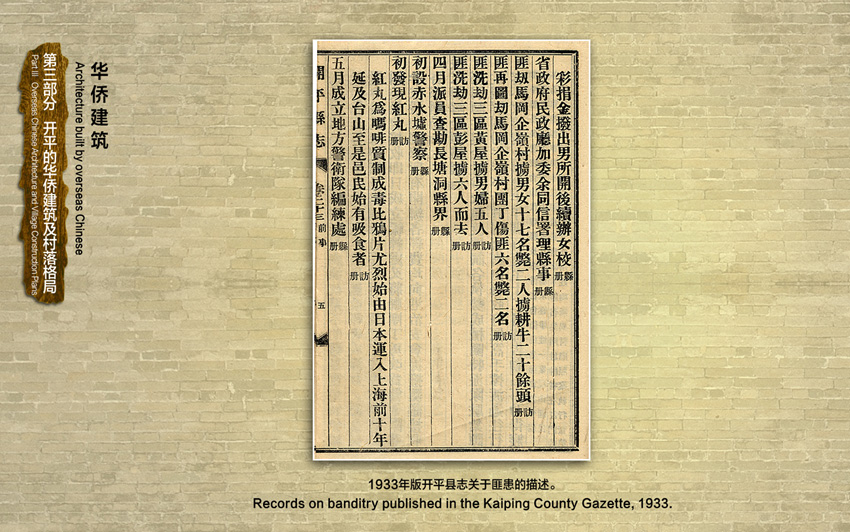 第三部分 开平的华侨建筑及村落格局
Part III Overseas Chinese Architecture and Village Construction Plans
华侨建筑
Architecture built by overseas Chinese
彩捐金撥出男所開後續辦女校縣册
省政府民政廳加委余同信署理縣事縣册
匪刼馬岡企嶺村擄男女十七名斃二人擄耕牛二十餘頭訪册
匪再圖刼馬岡企嶺村團丁傷匪六名斃二名訪册
匪洗劫三區黃屋擄男婦五人訪册
匪洗劫三區彭屋擄六人而去訪册
四月派員查勘長塘洞縣界縣册
初設赤水墟警察縣册
初發現紅丸訪册
紅丸爲嗎啡質制成毒比鴉片尤烈始由日本運入上海前十年
延及台山至是邑民始有吸食者訪册
五月成立地方警衛隊編練處縣册
開平縣志 卷二十三 前事 五
1933年版开平县志关于匪患的描述。
Records on banditry published in the Kaiping County Gazette, 1933.